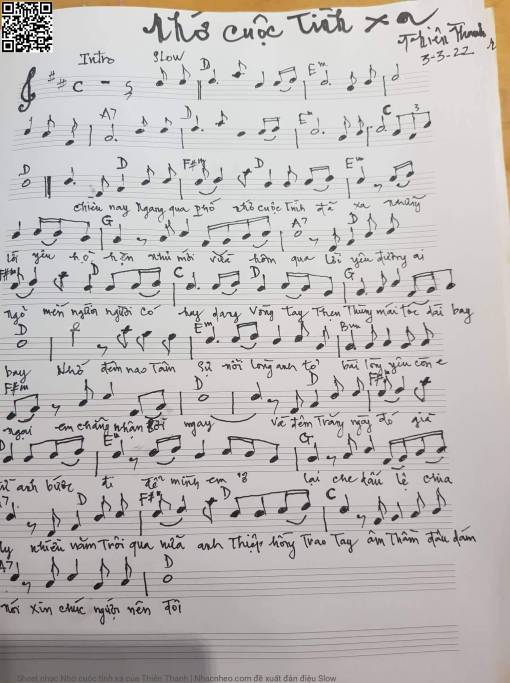 Nhớ cuộc Tình xa
Thiên Thanh
3-3-22
Intro Slow
C D Em
A7 D Em C 3
D D F#m Em
chiều nay Ngang qua phố nhớ cuộc Tình đã xa những
G A7 D
lời yêu hội hẹn như mới vừa hôm qua lời yêu đương ai
F#m D C D G
ngỏ mến người người có hay dang Vòng tay Then Thùng mái tóc dài bay
D Em Bm
bay Nhớ đêm nao Tâm sự nỗi lòng anh tỏ bài lòng yêu còn e
F#m D D F#m
ngại em chẳng nhận lời ngay Và đêm Trăng ngày đó giã
D Em D G
từ anh bước đi để mình em ở lại che dấu lệ chia
A7 D F#m D C
ly nhiều năm Trôi qua nữa anh Thiệp hồng Trao Tay âm Thầm đâu dám
A7 D
nói xin chúc người nên đôi
Sheet nhạc Nhớ cuộc tình xa của Thiên Thanh | Nhacnheo.com đề xuất đàn điệu Slow